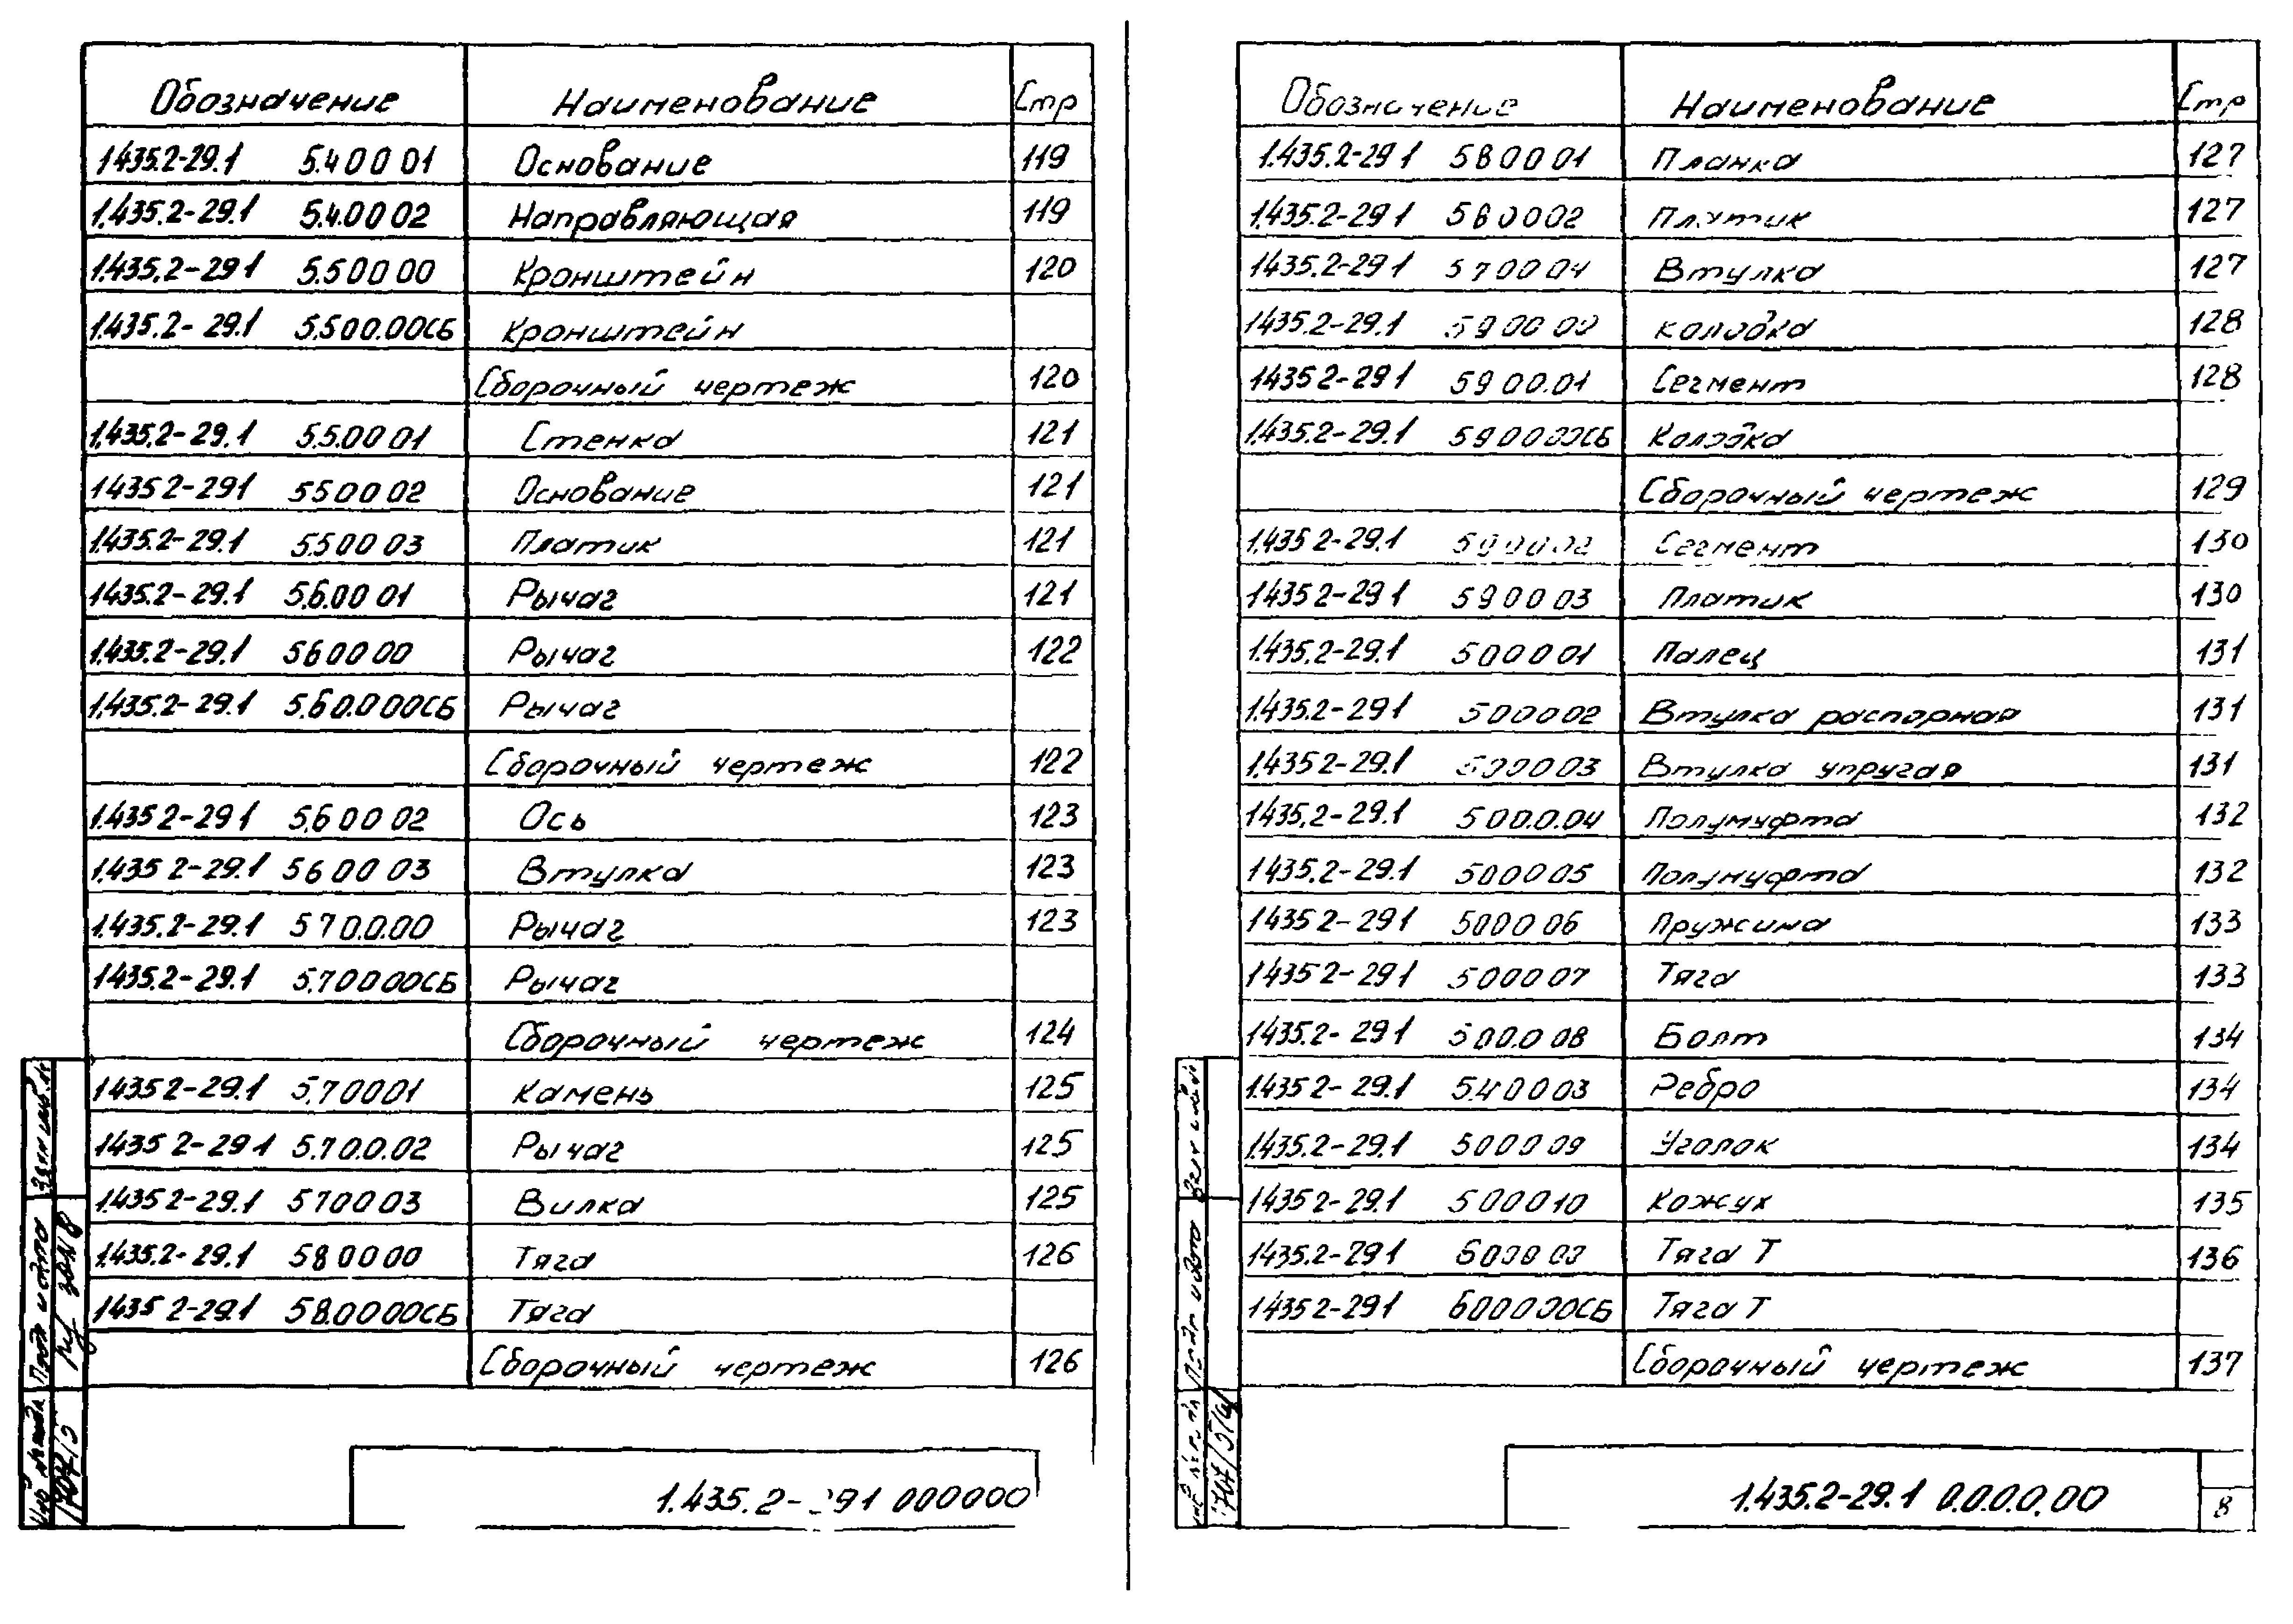 Обозначение Наименование Стр
1.435.2-29.1 5.4.00 01 Основание 119
1.435.2-29.1 5.4.00 02 Направляющая 119
1.435.2-29 1 5.5 00 00 Кронштейн 120
1.435.2-29.1 5.5 00.00СБ Кронштейн
Сборочный чертеж 120
1.435.2-29.1 5.5.00 01 Стенка 121
1.435 2-29 1 5 5 00 02 Основание 121
1.435.2-29.1 5.5 00 03 Платик 121
1.435.2-29.1 5.6.00 01 Рычаг 121
1.435.2-29.1 5 6 00 00 Рычаг 122
1.435.2-29.1 5.6 0.0 00СБ Рычаг
Сборочный чертеж 122
1.435 2-29 1 5.6 00 02 Ось 123
1.435 2-29.1 5 6 00 03 Втулка 123
1.435.2-29.1 5 7 0.0.00 Рычаг 123
1.435.2-29.1 5.7 00 00СБ Рычаг
Сборочный чертеж 124
1.435 2-29.1 5.7 00 01 Камень 125
1.435 2-29 1 5.7 0.0.02 Рычаг 125
1.435 2-29.1 5 7 00 03 Вилка 125
1.435.2-29.1 5 8 00 00 Тяга 126
1.435 2-29.1 5 8.00 00СБ Тяга
Сборочный чертеж 126
1.435.2- 291 000000
Обозначение Наименование Стр
1.435.2-29 1 5 8 00 01 Планка 127
1.435.2-29 1 5 8 00 02 Платик 127
1.435.2-29 1 5 7 00 04 Втулка 127
1.435.2-29.1 5 9 00 00 Колодка 128
1.435 2-29 1 5 9 00.01 Сегмент 128
1.435.2-29.1 5 9 00 00СБ Колодка
Сборочный чертеж 129
1.435 2-29.1 Сегмент 130
1.435 2-29 1 5 9 00 03 Платик 130
1.435.2-29.1 5 0 00 01 Палец 131
1.435.2-29 1 5 0 00 02 Втулка распорная 131
1.435 2-29.1 5 0 00 03 Втулка упругая 131
1.435.2-29.1 5 0 0.0.04 Полумуфта 132
1.435.2-29.1 5 0 00 05 Полумуфта 132
1.435 2-29 1 5 0 00 06 Пружина 133
1.435 2-29 1 5 0 00 07 Тяга 133
1.435.2-29 1 5 0 0.0 08 Болт 134
1.435 2-29.1 5.4 00 03 Ребро 134
1.435.2-29.1 5 0 00 09 Уголок 134
1.435 2-29.1 5 0 00 10 Кожух 135
1.435.2-29 1 6 0 00 00 Тяга Т 136
1.435 2-29 1 6 0 00 00СБ Тяга Т
Сборочный чертеж 137
1.435.2-29.1 0.0.0.0.00 8